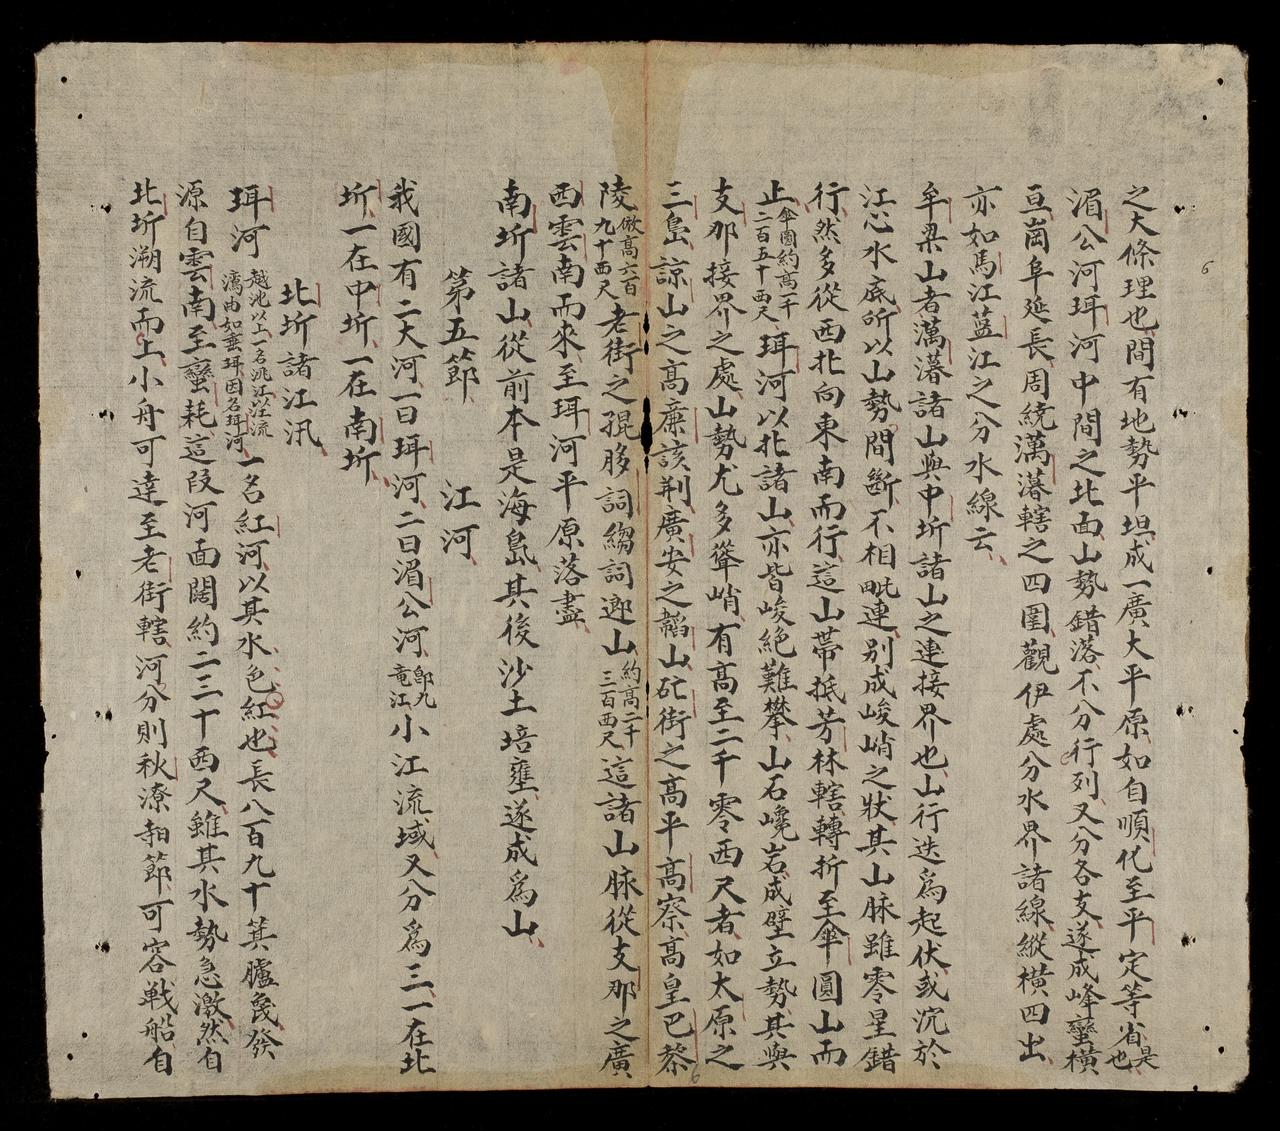 之大條理也間有地勢平坦成一廣大平原如自順化至平定等省是也
湄公河珥河中間之北面山勢錯落不分行列又分各支遂成峰巒橫
亘崗阜延長周繞萬瀋轄之四圍觀伊處分水界諸線縱橫四出
亦如馬江藍江之分水線云
牟梁山者萬瀋諸山與中圻諸山之連接界也山行迭爲起伏或沉於
江心水底所以山勢間斷不相毗連別成峻峭之狀其山脉雖零星錯
行然多從西北向東南而行這山帶抵芳林轄轉折至傘圓山而
止傘圓約高一千二百五十西尺珥河以北諸山亦皆峻絕難攀山石巉岩成壁立勢其與
支那接界之處山勢尤多聳峭有高至二千零西尺者如太原之
三島諒山之高廉該荆廣安之韜山𤴓街之高平高察高皇巴菾
陵倣高六百九十西尺老街之猑胗詞縐詞逊山約高二千三百西尺這諸山脉從支那之廣
西雲南而來至珥河平原落盡
南圻諸山從前本是海島其後沙土培壅遂成爲山
第五節 江河
我國有二大河一曰珥河二曰湄公河卽九竜江小江流域又分爲三一在北
圻一在中圻一在南圻
北圻諸江汛
珥河越池以上一名洮江以江流漓曲如垂珥因名珥河一名紅河以其水色紅也長八百九十箕臚㡬發
源自雲南至蠻耗這段河面闊約二三十西尺雖其水勢急激然自
北圻溯流而上小舟可達至老街轄河分則秋潦初節可容戦船自